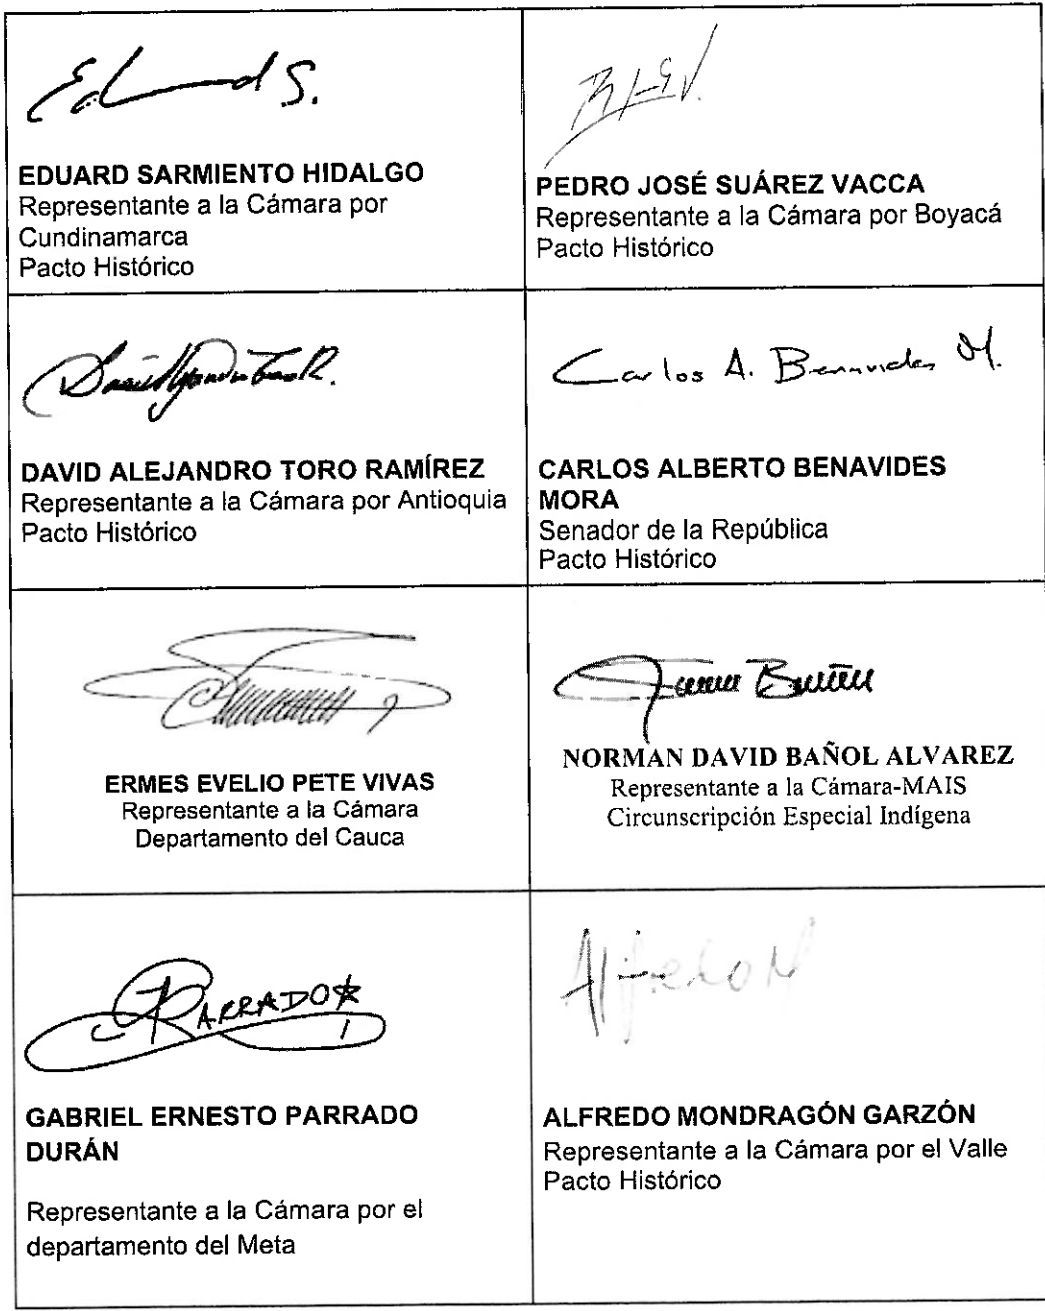 Eduard S.
EDUARD SARMIENTO HIDALGO
Representante a la Cámara por
Cundinamarca
Pacto Histórico
PEDRO JOSÉ SUÁREZ VACCA
Representante a la Cámara por Boyacá
Pacto Histórico
DAVID ALEJANDRO TORO RAMÍREZ
Representante a la Cámara por Antioquia
Pacto Histórico
Carlos A. Benavides M.
CARLOS ALBERTO BENAVIDES
MORA
Senador de la República
Pacto Histórico
ERMES EVELIO PETE VIVAS
Representante a la Cámara
Departamento del Cauca
NORMAN DAVID BAÑOL ALVAREZ
Representante a la Cámara-MAIS
Circunscripción Especial Indígena
PARRADO
GABRIEL ERNESTO PARRADO
DURÁN
Representante a la Cámara por el
departamento del Meta
Alfredo M
ALFREDO MONDRAGÓN GARZÓN
Representante a la Cámara por el Valle
Pacto Histórico